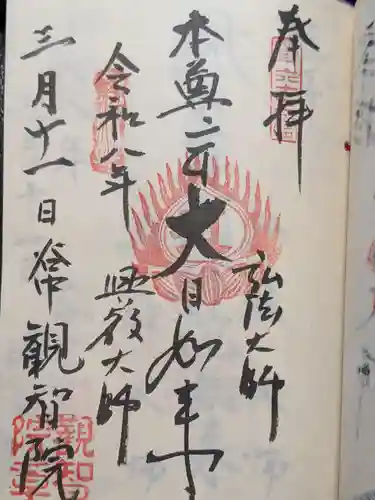 奉拝
弘法大師
本尊 大日如来
令和八年
興教大師
三月十一日
觀智院
觀智院